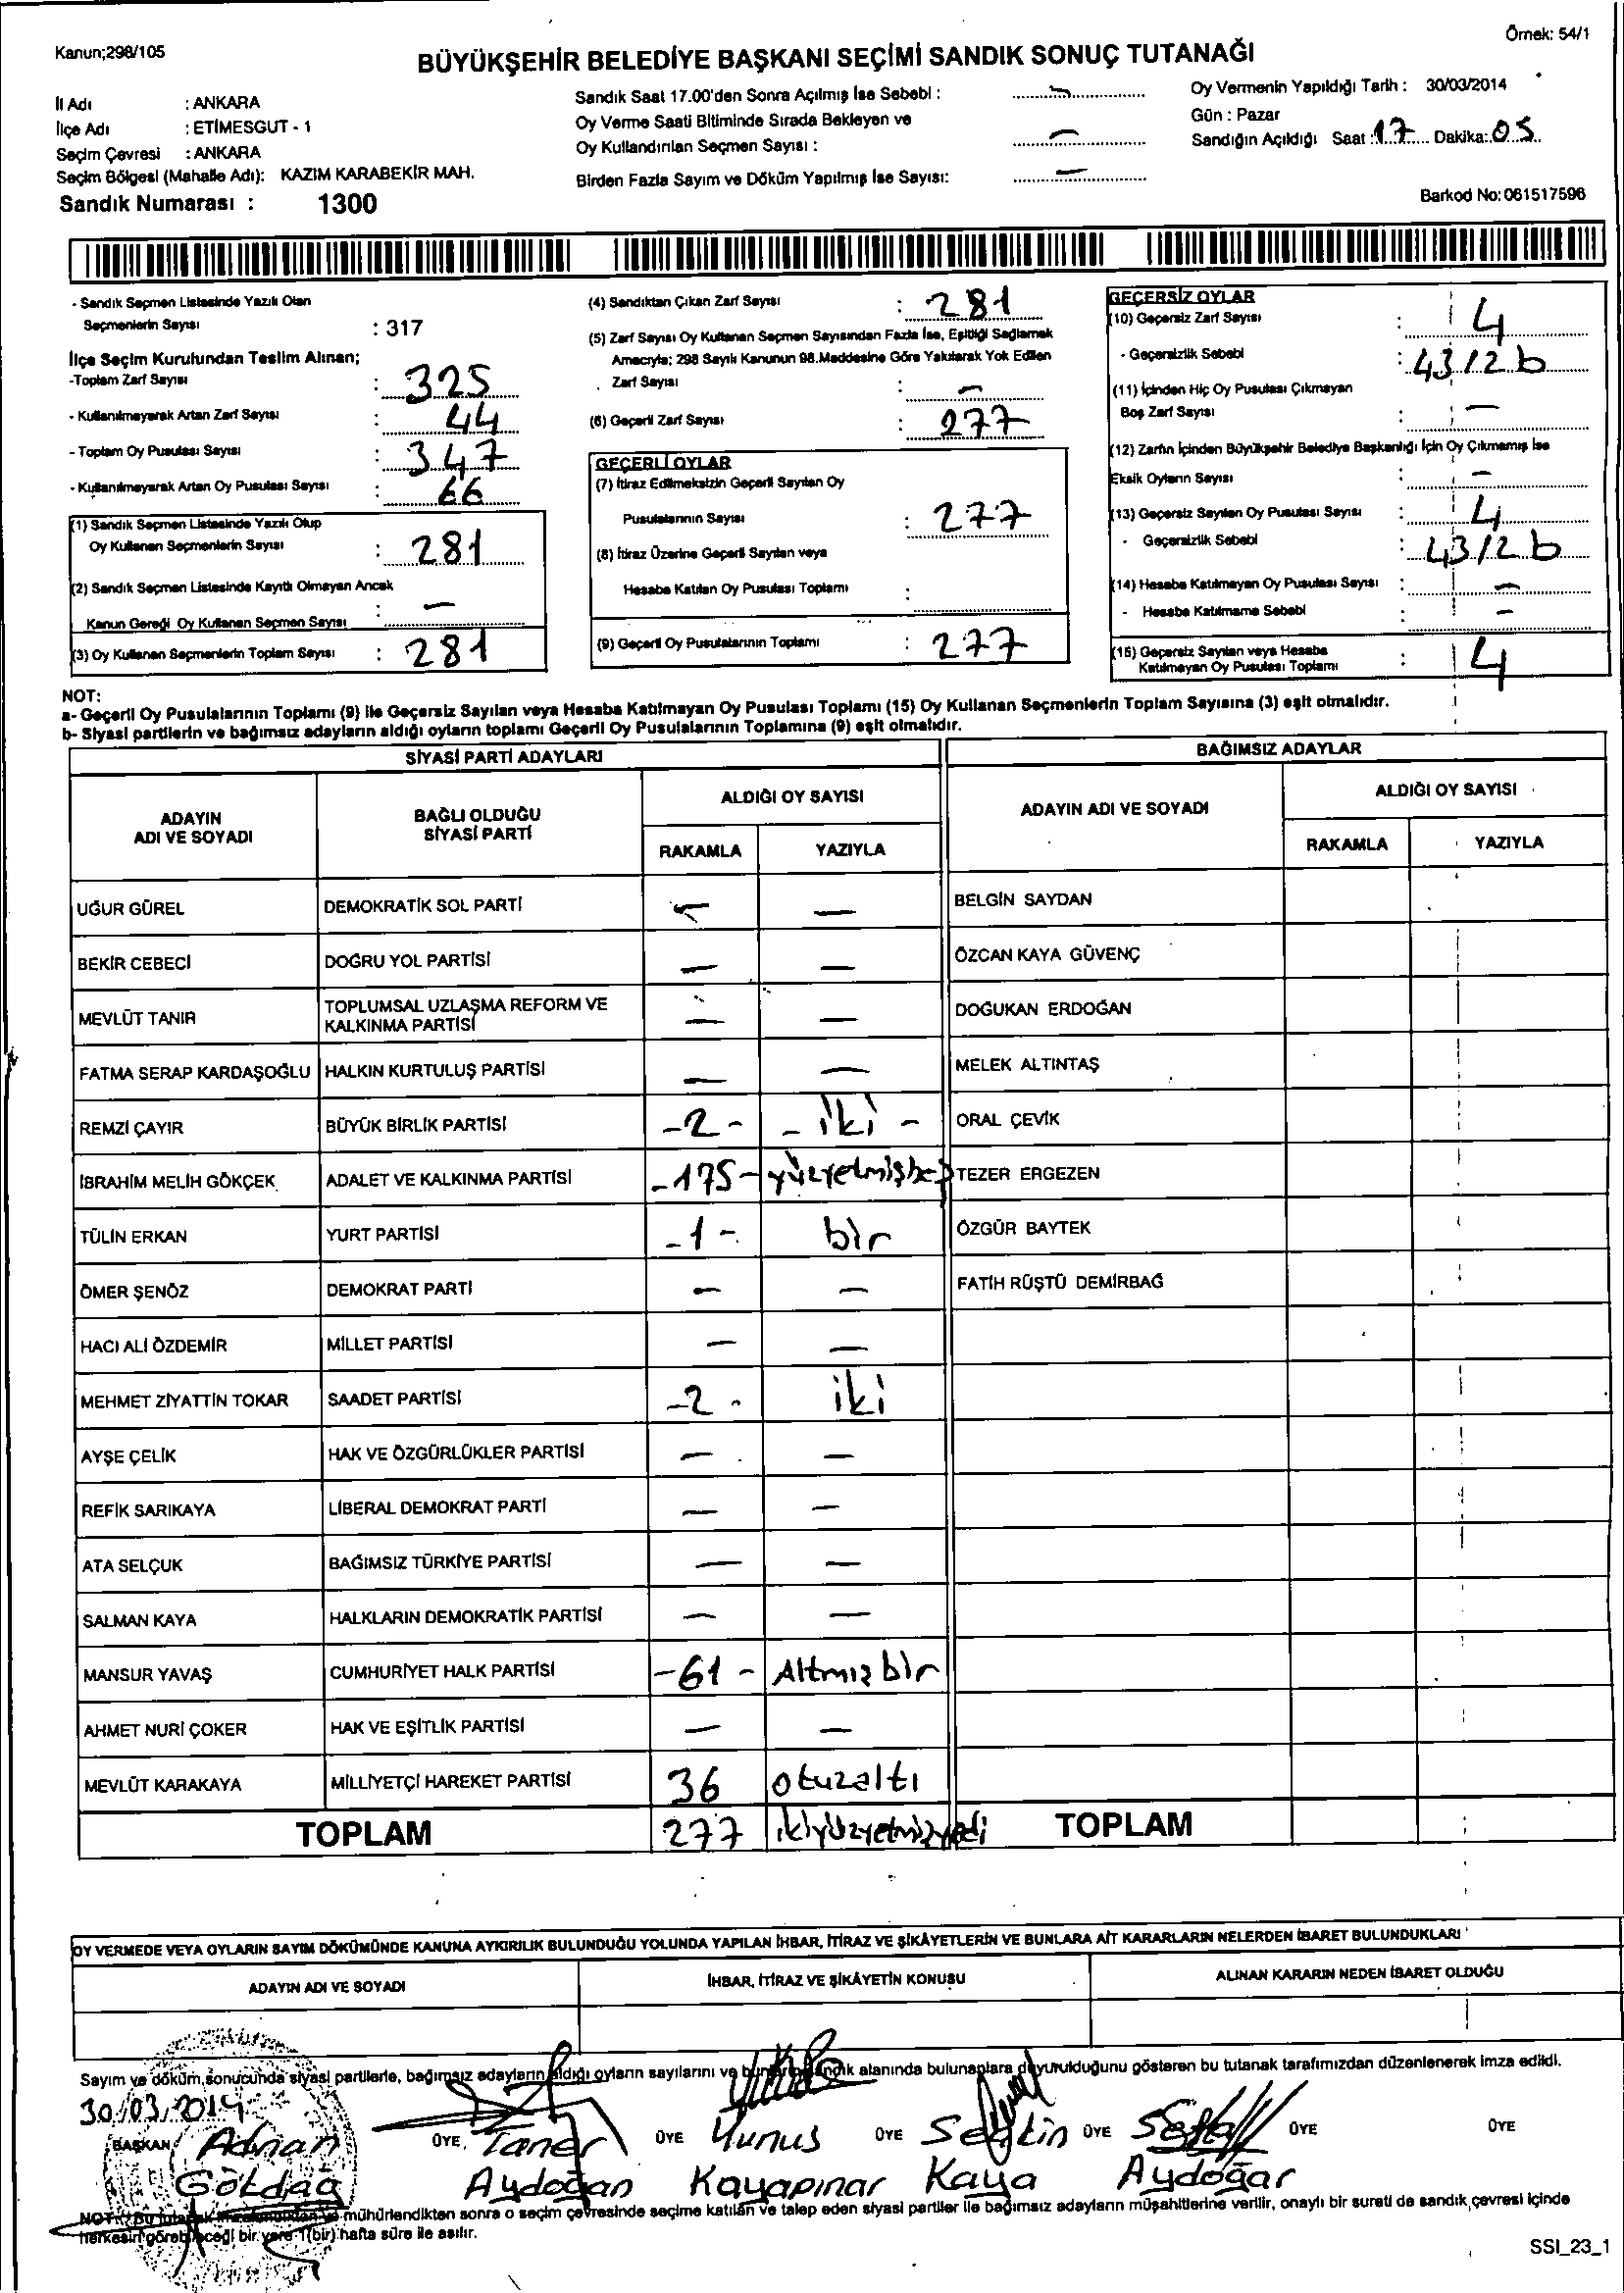 Kanun;298/105
Örnek: 54/1
BÜYÜKŞEHİR BELEDİYE BAŞKANI SEÇİMİ SANDIK SONUÇ TUTANAĞI
İl Adı : ANKARA
İlçe Adı : ETİMESGUT - 1
Seçim Çevresi : ANKARA
Seçim Bölgesi (Mahalle Adı): KAZIM KARABEKİR MAH.
Sandık Numarası : 1300
Sandık Saat 17.00'den Sonra Açılmış İse Sebebi : -
Oy Verme Saati Bitiminde Sırada Bekleyen ve
Oy Kullandırılan Seçmen Sayısı : -
Birden Fazla Sayım ve Döküm Yapılmış İse Sayısı: -
Oy Vermenin Yapıldığı Tarih : 30/03/2014
Gün : Pazar
Sandığın Açıldığı Saat : 17 Dakika: 05
Barkod No: 061517596
- Sandık Seçmen Listesinde Yazılı Olan
Seçmenlerin Sayısı : 317
İlçe Seçim Kurulundan Teslim Alınan;
-Toplam Zarf Sayısı : 325
- Kullanılmayarak Artan Zarf Sayısı : 44
- Toplam Oy Pusulası Sayısı : 347
- Kullanılmayarak Artan Oy Pusulası Sayısı : 66
(1) Sandık Seçmen Listesinde Yazılı Olup
Oy Kullanan Seçmenlerin Sayısı : 281
(2) Sandık Seçmen Listesinde Kayıtlı Olmayan Ancak
Kanun Gereği Oy Kullanan Seçmen Sayısı : -
(3) Oy Kullanan Seçmenlerin Toplam Sayısı : 281
(4) Sandıktan Çıkan Zarf Sayısı : 281
(5) Zarf Sayısı Oy Kullanan Seçmen Sayısından Fazla İse, Eşitliği Sağlamak
Amacıyla; 298 Sayılı Kanunun 98.Maddesine Göre Yakılarak Yok Edilen
Zarf Sayısı : -
(6) Geçerli Zarf Sayısı : 277
GEÇERLİ OYLAR
(7) İtiraz Edilmeksizin Geçerli Sayılan Oy
Pusulalarının Sayısı : 277
(8) İtiraz Üzerine Geçerli Sayılan veya
Hesaba Katılan Oy Pusulası Toplamı :
(9) Geçerli Oy Pusulalarının Toplamı : 277
GEÇERSİZ OYLAR
(10) Geçersiz Zarf Sayısı : 4
- Geçersizlik Sebebi : 43/2 b
(11) İçinden Hiç Oy Pusulası Çıkmayan
Boş Zarf Sayısı : -
(12) Zarfın İçinden Büyükşehir Belediye Başkanlığı İçin Oy Çıkmamış İse
Eksik Oyların Sayısı : -
(13) Geçersiz Sayılan Oy Pusulası Sayısı : 4
- Geçersizlik Sebebi : 43/2 b
(14) Hesaba Katılmayan Oy Pusulası Sayısı : -
- Hesaba Katılmama Sebebi : -
(15) Geçersiz Sayılan veya Hesaba
Katılmayan Oy Pusulası Toplamı : 4
NOT:
a- Geçerli Oy Pusulalarının Toplamı (9) ile Geçersiz Sayılan veya Hesaba Katılmayan Oy Pusulası Toplamı (15) Oy Kullanan Seçmenlerin Toplam Sayısına (3) eşit olmalıdır.
b- Siyasi partilerin ve bağımsız adayların aldığı oyların toplamı Geçerli Oy Pusulalarının Toplamına (9) eşit olmalıdır.
SİYASİ PARTİ ADAYLARI
ADAYIN ADI VE SOYADI
BAĞLI OLDUĞU SİYASİ PARTİ
ALDIĞI OY SAYISI
RAKAMLA YAZIYLA
UĞUR GÜREL DEMOKRATİK SOL PARTİ - -
BEKİR CEBECİ DOĞRU YOL PARTİSİ - -
MEVLÜT TANIR TOPLUMSAL UZLAŞMA REFORM VE KALKINMA PARTİSİ - -
FATMA SERAP KARDAŞOĞLU HALKIN KURTULUŞ PARTİSİ - -
REMZİ ÇAYIR BÜYÜK BİRLİK PARTİSİ -2- - iki -
İBRAHİM MELİH GÖKÇEK ADALET VE KALKINMA PARTİSİ -175- yüzyetmişbeş
TÜLİN ERKAN YURT PARTİSİ -1- bir
ÖMER ŞENÖZ DEMOKRAT PARTİ - -
HACI ALİ ÖZDEMİR MİLLET PARTİSİ - -
MEHMET ZİYATTİN TOKAR SAADET PARTİSİ -2- iki
AYŞE ÇELİK HAK VE ÖZGÜRLÜKLER PARTİSİ - -
REFİK SARIKAYA LİBERAL DEMOKRAT PARTİ - -
ATA SELÇUK BAĞIMSIZ TÜRKİYE PARTİSİ - -
SALMAN KAYA HALKLARIN DEMOKRATİK PARTİSİ - -
MANSUR YAVAŞ CUMHURİYET HALK PARTİSİ -61- Altmış bir
AHMET NURİ ÇOKER HAK VE EŞİTLİK PARTİSİ - -
MEVLÜT KARAKAYA MİLLİYETÇİ HAREKET PARTİSİ 36 otuzaltı
TOPLAM 277 ikiyüzyetmişyedi
BAĞIMSIZ ADAYLAR
ADAYIN ADI VE SOYADI
ALDIĞI OY SAYISI
RAKAMLA YAZIYLA
BELGİN SAYDAN
ÖZCAN KAYA GÜVENÇ
DOĞUKAN ERDOĞAN
MELEK ALTINTAŞ
ORAL ÇEVİK
TEZER ERGEZEN
ÖZGÜR BAYTEK
FATİH RÜŞTÜ DEMİRBAĞ
TOPLAM
OY VERMEDE VEYA OYLARIN SAYIM DÖKÜMÜNDE KANUNA AYKIRILIK BULUNDUĞU YOLUNDA YAPILAN İHBAR, İTİRAZ VE ŞİKÂYETLERİN VE BUNLARA AİT KARARLARIN NELERDEN İBARET BULUNDUKLARI
ADAYIN ADI VE SOYADI İHBAR, İTİRAZ VE ŞİKÂYETİN KONUSU ALINAN KARARIN NEDEN İBARET OLDUĞU
Sayım ve döküm sonucunda siyasi partilerle, bağımsız adayların aldığı oyların sayılarını ve bunların sandık alanında bulunanlara duyurulduğunu gösteren bu tutanak tarafımızdan düzenlenerek imza edildi.
30/03/2014
BAŞKAN Adnan ÜYE Taner ÜYE Yunus ÜYE Seçkin ÜYE ÜYE ÜYE
Göldağ Aydoğan Kayapınar Kaya Aydoğar
NOT: Bu tutanak mühürlendikten sonra o seçim çevresinde seçime katılan ve talep eden siyasi partiler ile bağımsız adayların müşahitlerine verilir, onaylı bir sureti de sandık çevresi içinde
herkesin görebileceği bir yere 1(bir) hafta süre ile asılır.
SSI_23_1